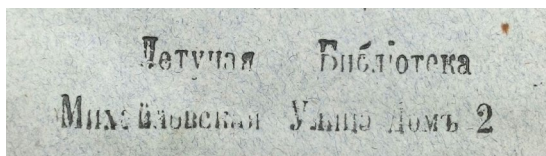 Летучая Библіотека
Михайловская Улица Домъ 2